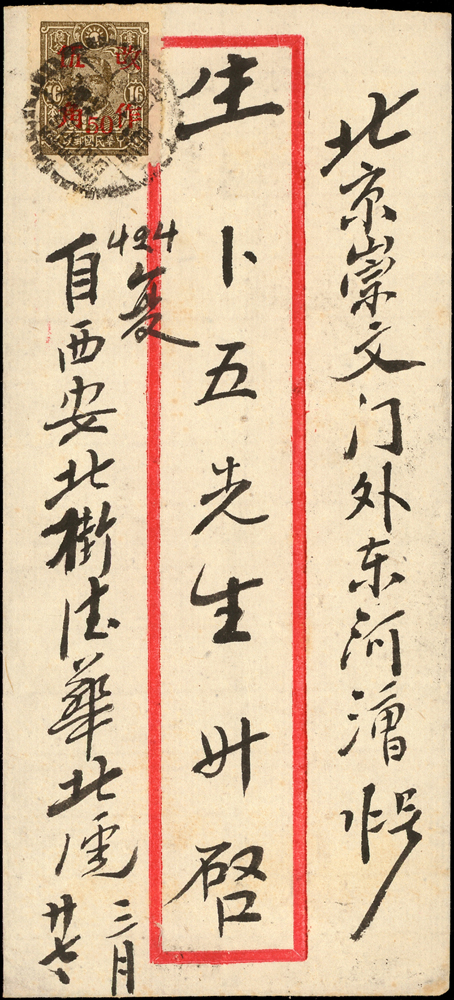 北京崇文门外东河漕
生卜五先生升啓
424
复
自西安北街德華北
三月
廿七
改作
伍角
50
16
16